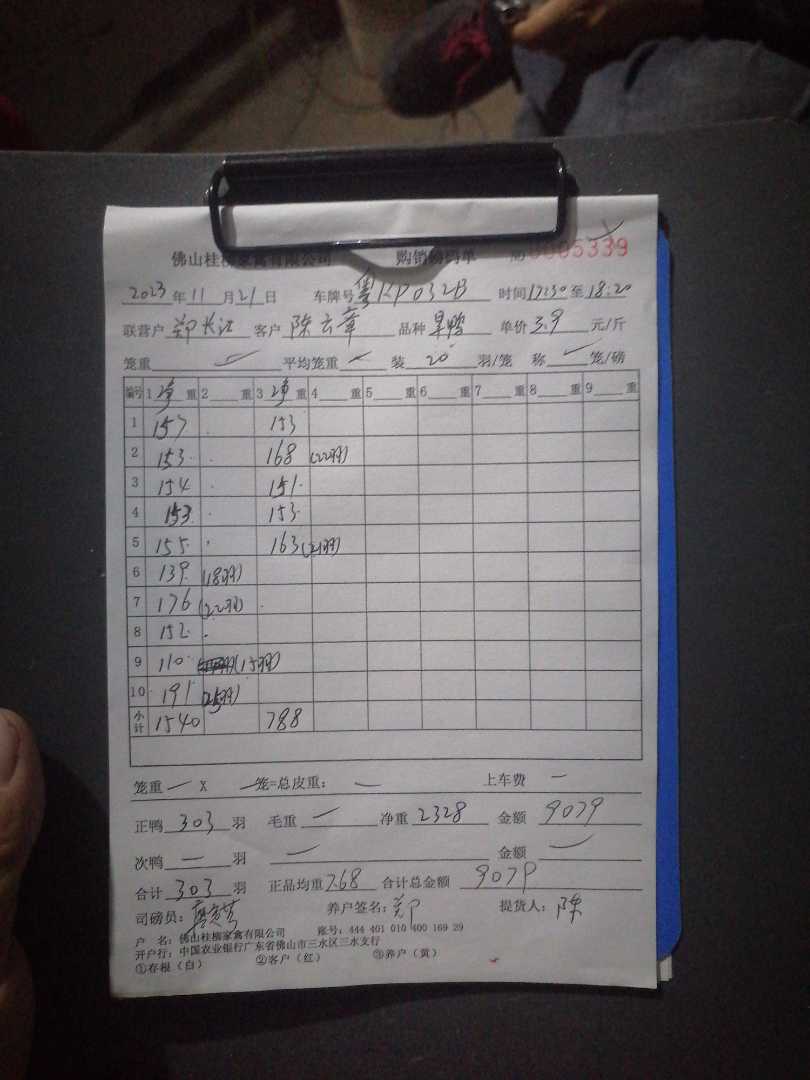 佛山桂柳家禽有限公司 购销磅码单 № 0005339
2023年11月21日 车牌号 粤KP032B 时间17:30至18:20
联营户 郑长江 客户 陈云章 品种 单价 3.9 元/斤
笼重 平均笼重 装 20 羽/笼 称 笼/磅
编号 1 净 重 2 重 3 净 重 4 重 5 重 6 重 7 重 8 重 9 重
1 157 153
2 153 168 (22羽)
3 154 151
4 153 153
5 155 163 (21羽)
6 139 (18羽)
7 176 (22羽)
8 152
9 110 (15羽)
10 191 (25羽)
小计 1540 788
笼重 — X — 笼=总皮重: — 上车费 —
正鸭 303 羽 毛重 — 净重 2328 金额 9079
次鸭 — 羽 — 金额 —
合计 303 羽 正品均重 7.68 合计总金额 9079
司磅员: 养户签名: 郑 提货人: 陈
户 名: 佛山桂柳家禽有限公司 账号: 444 401 010 400 169 29
开户行: 中国农业银行广东省佛山市三水区三水支行
①存根(白) ②客户(红) ③养户(黄)